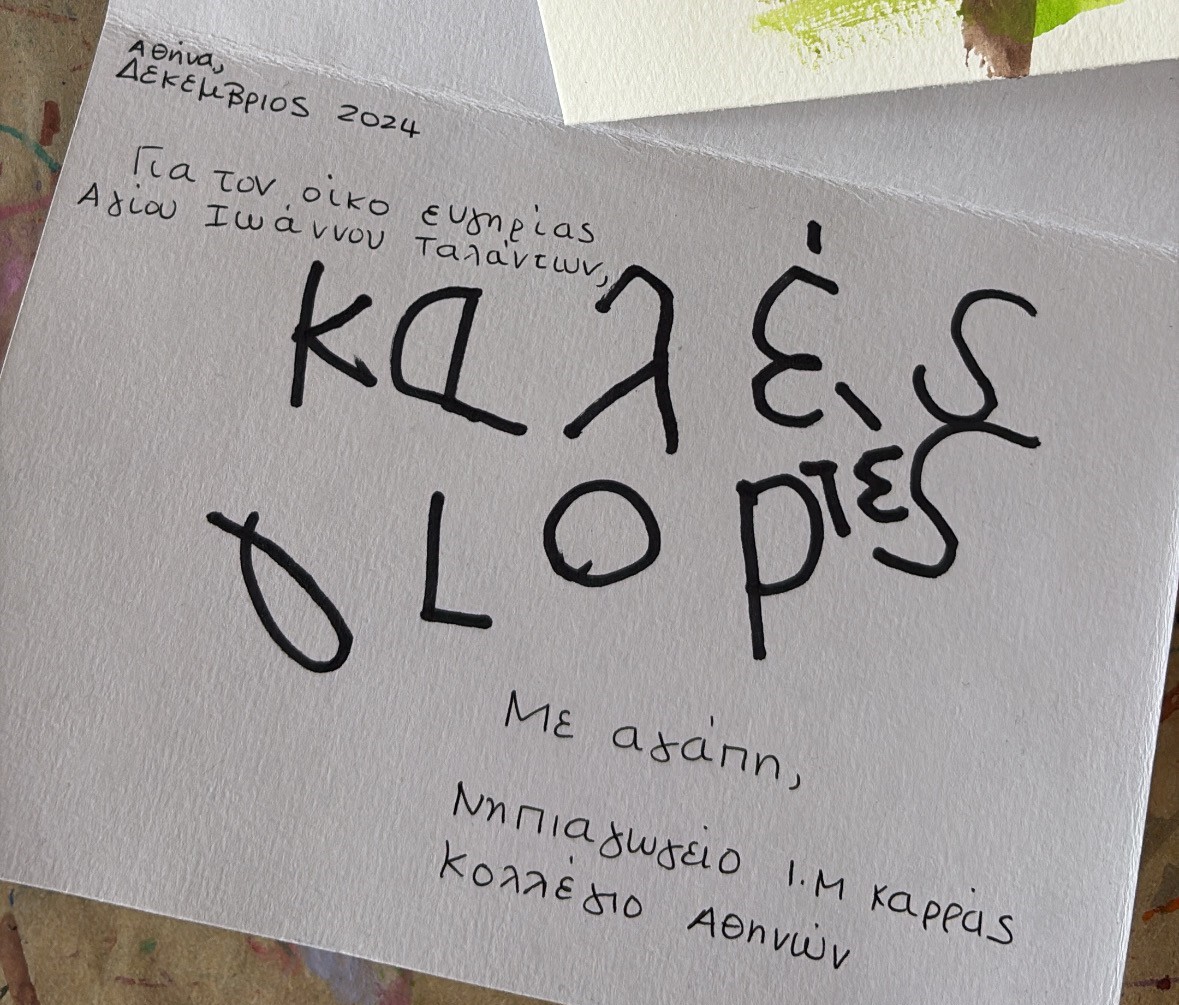 Αθήνα,
ΔΕΚΕΜΒΡΙΟΣ 2024
Για τον οίκο ευγηρίας
Αγίου Ιωάννου Ταλάντων,
καλές
γιορτες
Με αγάπη,
Νηπιαγωγείο Ι.Μ Καρράς
Κολλέγιο Αθηνών